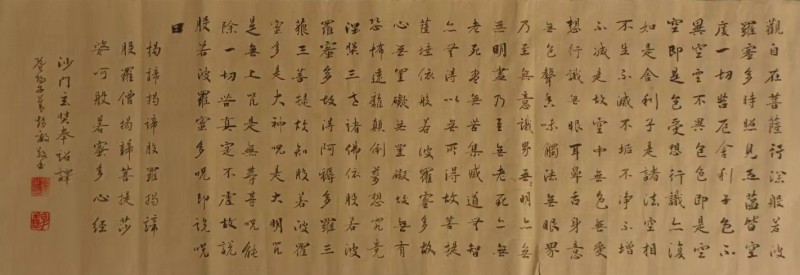 觀自在菩薩行深般若波
羅蜜多時照見五蘊皆空
度一切苦厄舍利子色不
異空空不異色色即是空
空即是色受想行識亦復
如是舍利子是諸法空相
不生不滅不垢不淨不增
不減是故空中無色無受
想行識無眼耳鼻舌身意
無色聲香味觸法無眼界
乃至無意識界無無明亦
無無明盡乃至無老死亦無
老死盡無苦集滅道無智
亦無得以無所得故菩提
薩埵依般若波羅蜜多故
心無罣礙無罣礙故無有
恐怖遠離顛倒夢想究竟
涅槃三世諸佛依般若波
羅蜜多故得阿耨多羅三
藐三菩提故知般若波羅
蜜多是大神咒是大明咒
是無上咒是無等等咒能
除一切苦真實不虛故說
般若波羅蜜多咒即說咒
曰
揭諦揭諦般羅揭諦
般羅僧揭諦菩提莎
婆訶般若蜜多心經
沙門玄奘奉詔譯